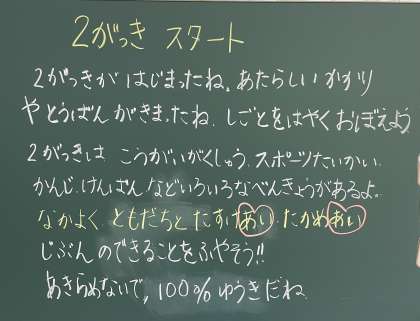 2がっき スタート
2がっきが はじまったね。あたらしい かかり
や とうばん がきまったね。しごとをはやく おぼえよう
2がっきは こうがいがくしゅう、スポーツたいかい、
かんじ、けんばん などいろいろなべんきょうがあるよ。
なかよく ともだちと たすけあい、たかめあい
じぶん のできることをふやそう!!
あきらめないで、100% ゆうきだね